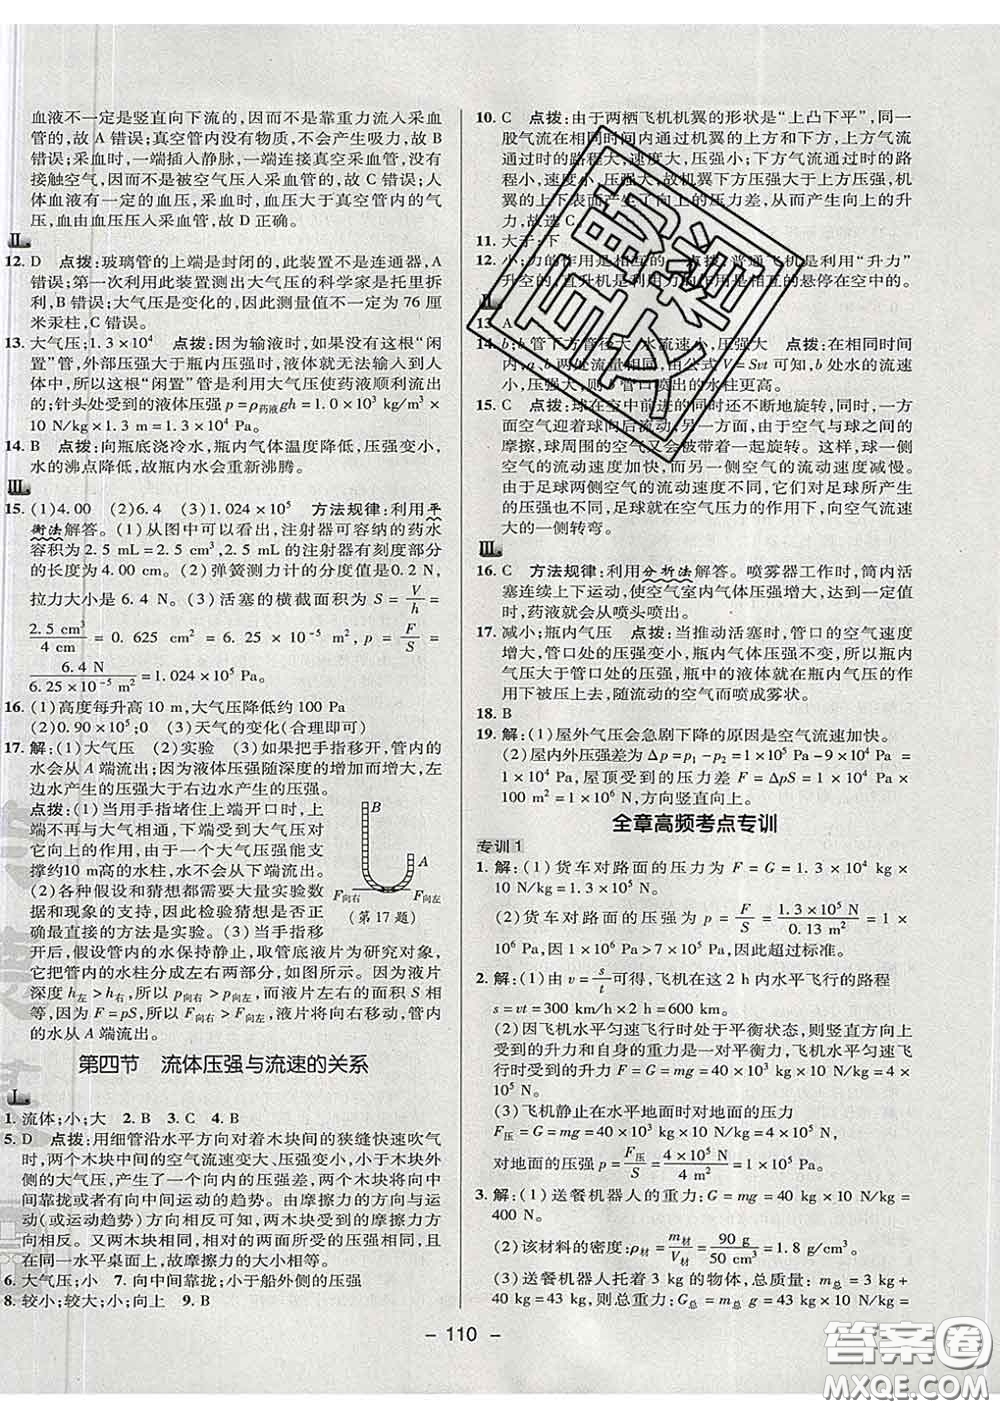 血液不一定是竖直向下流的，因而不是靠重力流入采血
管的，故 A 错误；真空管内没有物质，不会产生吸力，故 B
错误；采血时，一端插入静脉，一端连接真空采血管，没有
接触空气，因而不是被空气压入采血管的，故 C 错误；人
体血液有一定的血压，采血时，血压大于真空管内的气
压，血由血压压入采血管，故 D 正确。
Ⅱ
12. D　点拨：玻璃管的上端是封闭的，此装置不是连通器，A
错误；第一次利用此装置测出大气压的科学家是托里拆
利，B 错误；大气压是变化的，因此测量值不一定为 76 厘
米汞柱，C 错误。
13. 大气压；1.3×10⁴　点拨：因为输液时，如果没有这根“闲
置”管，外部压强大于瓶内压强，液体就无法输入到人体
中，所以这根“闲置”管是利用大气压使药液顺利流出
的；针头处受到的液体压强 p＝ρ药液gh＝1.0×10³ kg/m³×
10 N/kg×1.3 m＝1.3×10⁴ Pa。
14. B　点拨：向瓶底浇冷水，瓶内气体温度降低，压强变小，
水的沸点降低，故瓶内水会重新沸腾。
Ⅲ
15. (1)4.00　(2)6.4　(3)1.024×10⁵　方法规律：利用平
衡法解答。(1)从图中可以看出，注射器可容纳的药水
容积为 2.5 mL＝2.5 cm³，2.5 mL 的注射器有刻度部分
的长度为 4.00 cm。(2)弹簧测力计的分度值是0.2 N，
拉力大小是 6.4 N。(3)活塞的横截面积为 S＝V/h＝
2.5 cm³/4 cm＝0.625 cm²＝6.25×10⁻⁵ m²，p＝F/S＝
6.4 N/6.25×10⁻⁵ m²＝1.024×10⁵ Pa。
16. (1)高度每升高 10 m，大气压降低约 100 Pa
(2)0.90×10⁵；0　(3)天气的变化(合理即可)
17. 解：(1)大气压　(2)实验　(3)如果把手指移开，管内的
水会从 A 端流出；因为液体压强随深度的增加而增大，左
边水产生的压强大于右边水产生的压强。
点拨：(1)当用手指堵住上端开口时，上
端不再与大气相通，下端受到大气压强
的作用，而大气压强能支持产生压强大
约10 m高的水柱，水不会从下端流出。
(2)各种假设和猜想都需要实验测量数
据和现象的支持，因此检验猜想是否正
确最直接的方法是实验。(3)当手指移
开后，假设管内的水保持静止，取管底液片为研究对象，
它把管内的水柱分成左右两部分，如图所示。因为液片
深度 h左＞h右，所以 p向右＞p向左，而液片左右的面积 S 相
等，因为 F＝pS，所以 F向右＞F向左，液片将向右移动，管内
的水从 A 端流出。
B
A
F向右　F向左
(第 17 题)
第四节　流体压强与流速的关系
Ⅰ
1. 流体；小；大　2. B　3. C　4. B
5. D　点拨：用细管沿水平方向对着木块间的狭缝快速吹气
时，两个木块中间的空气流速变大、压强变小，小于木块外侧
的大气压，产生了一个内外的压强差，所以两个木块向中
间靠拢或者有向中间运动的趋势。由摩擦力的方向与运
动(或运动趋势)方向相反可知，两木块受到的摩擦力方
向相反。又两木块大小相同，相对的两面所受的压强也相
同，在同一水平桌面上，故摩擦力的大小相等。
6. 大气压；小　7. 向中间靠拢；小于船外侧的压强
8. 较小；较大；小；向上　9. B
10. C　点拨：由于两栖飞机机翼的形状是“上凸下平”，同一
股气流在相同时间内通过机翼的上方和下方，上方气流
通过时的路程大，速度大，压强小；下方气流通过时的路
程小，速度小，压强大，故机翼下方压强大于上方压强，机
翼的上下表面产生了向上的压力差，从而产生向上的升
力，故选 C。
11. 大于；下
12. 小；力的作用是相互的　点拨：普通飞机是利用“升力”
升空的，直升机是利用力的作用是相互的悬停在空中的。
Ⅱ
13. A
14. b；b 管下方管径大，水流速小，压强大　点拨：在相同时间
内，a、b 两处流量相同，由公式 V＝Svt 可知，b 处水的流速
小，压强大，则 b 管口喷出的水柱更高。
15. C　点拨：球在空中前进的同时还不断地旋转，同时，一方
面空气迎着球向后流动，另一方面，由于空气与球之间的
摩擦，球周围的空气又会被带着一起旋转。这样，球一侧
空气的流动速度加快，而另一侧空气的流动速度减慢。
由于足球两侧空气的流动速度不同，它们对足球所产生
的压强也不同，足球就在空气压力的作用下，向空气流速
大的一侧转弯。
Ⅲ
16. C　方法规律：利用分析法解答。喷雾器工作时，筒内活
塞连续上下运动，使空气室内气体压强增大，达到一定值
时，药液就会从喷头喷出。
17. 减小；瓶内气压　点拨：当推动活塞时，管口的空气速度
增大，管口处的压强变小，而瓶内气体压强不变，所以瓶内
气压大于管口处的气压，瓶中的液体就在瓶内气压的作用下
被压上去，随流动的空气而喷成雾状。
18. B
19. 解：(1)屋外气压会急剧下降的原因是空气流速加快。
(2)屋内外压强差为 Δp＝p₁－p₂＝1×10⁵ Pa－9×10⁴ Pa＝
1×10⁴ Pa，屋顶受到的压力差 F＝ΔpS＝1×10⁴ Pa×
100 m²＝1×10⁶ N，方向竖直向上。
全章高频考点专训
专训 1
1. 解：(1)货车对路面的压力为 F＝G＝1.3×10⁴ kg×
10 N/kg＝1.3×10⁵ N。
(2)货车对路面的压强为 p＝F/S＝1.3×10⁵ N/0.13 m²＝1×
10⁶ Pa，因 1×10⁶ Pa＞7×10⁵ Pa，因此超过标准。
2. 解：(1)由 v＝s/t 可得，飞机在这 2 h 内水平飞行的路程
s＝vt＝300 km/h×2 h＝600 km。
(2)因飞机水平匀速飞行时处于平衡状态，则竖直方向上
受到的升力和自身的重力为一对平衡力，飞机水平匀速飞
行时受到的升力 F升＝G＝mg＝60×10³ kg×10 N/kg＝
6×10⁵ N。
(3)飞机静止在水平地面时对地面的压力
F压＝G＝mg＝40×10³ kg×10 N/kg＝4×10⁵ N，
对地面的压强 p＝F压/S＝4×10⁵ N/4 m²＝1×10⁵ Pa。
3. 解：(1)送餐机器人的重力：G＝mg＝40 kg×10 N/kg＝
400 N。
(2)该材料的密度：ρ材＝m材/V材＝90 g/50 cm³＝1.8 g/cm³。
(3)送餐机器人托着 3 kg 的物体，总质量：m总＝3 kg＋
40 kg＝43 kg，则对水平地面的压力：G总＝m总g＝43 kg×
－ 110 －
互助文档
答案圈
MXQE.COM